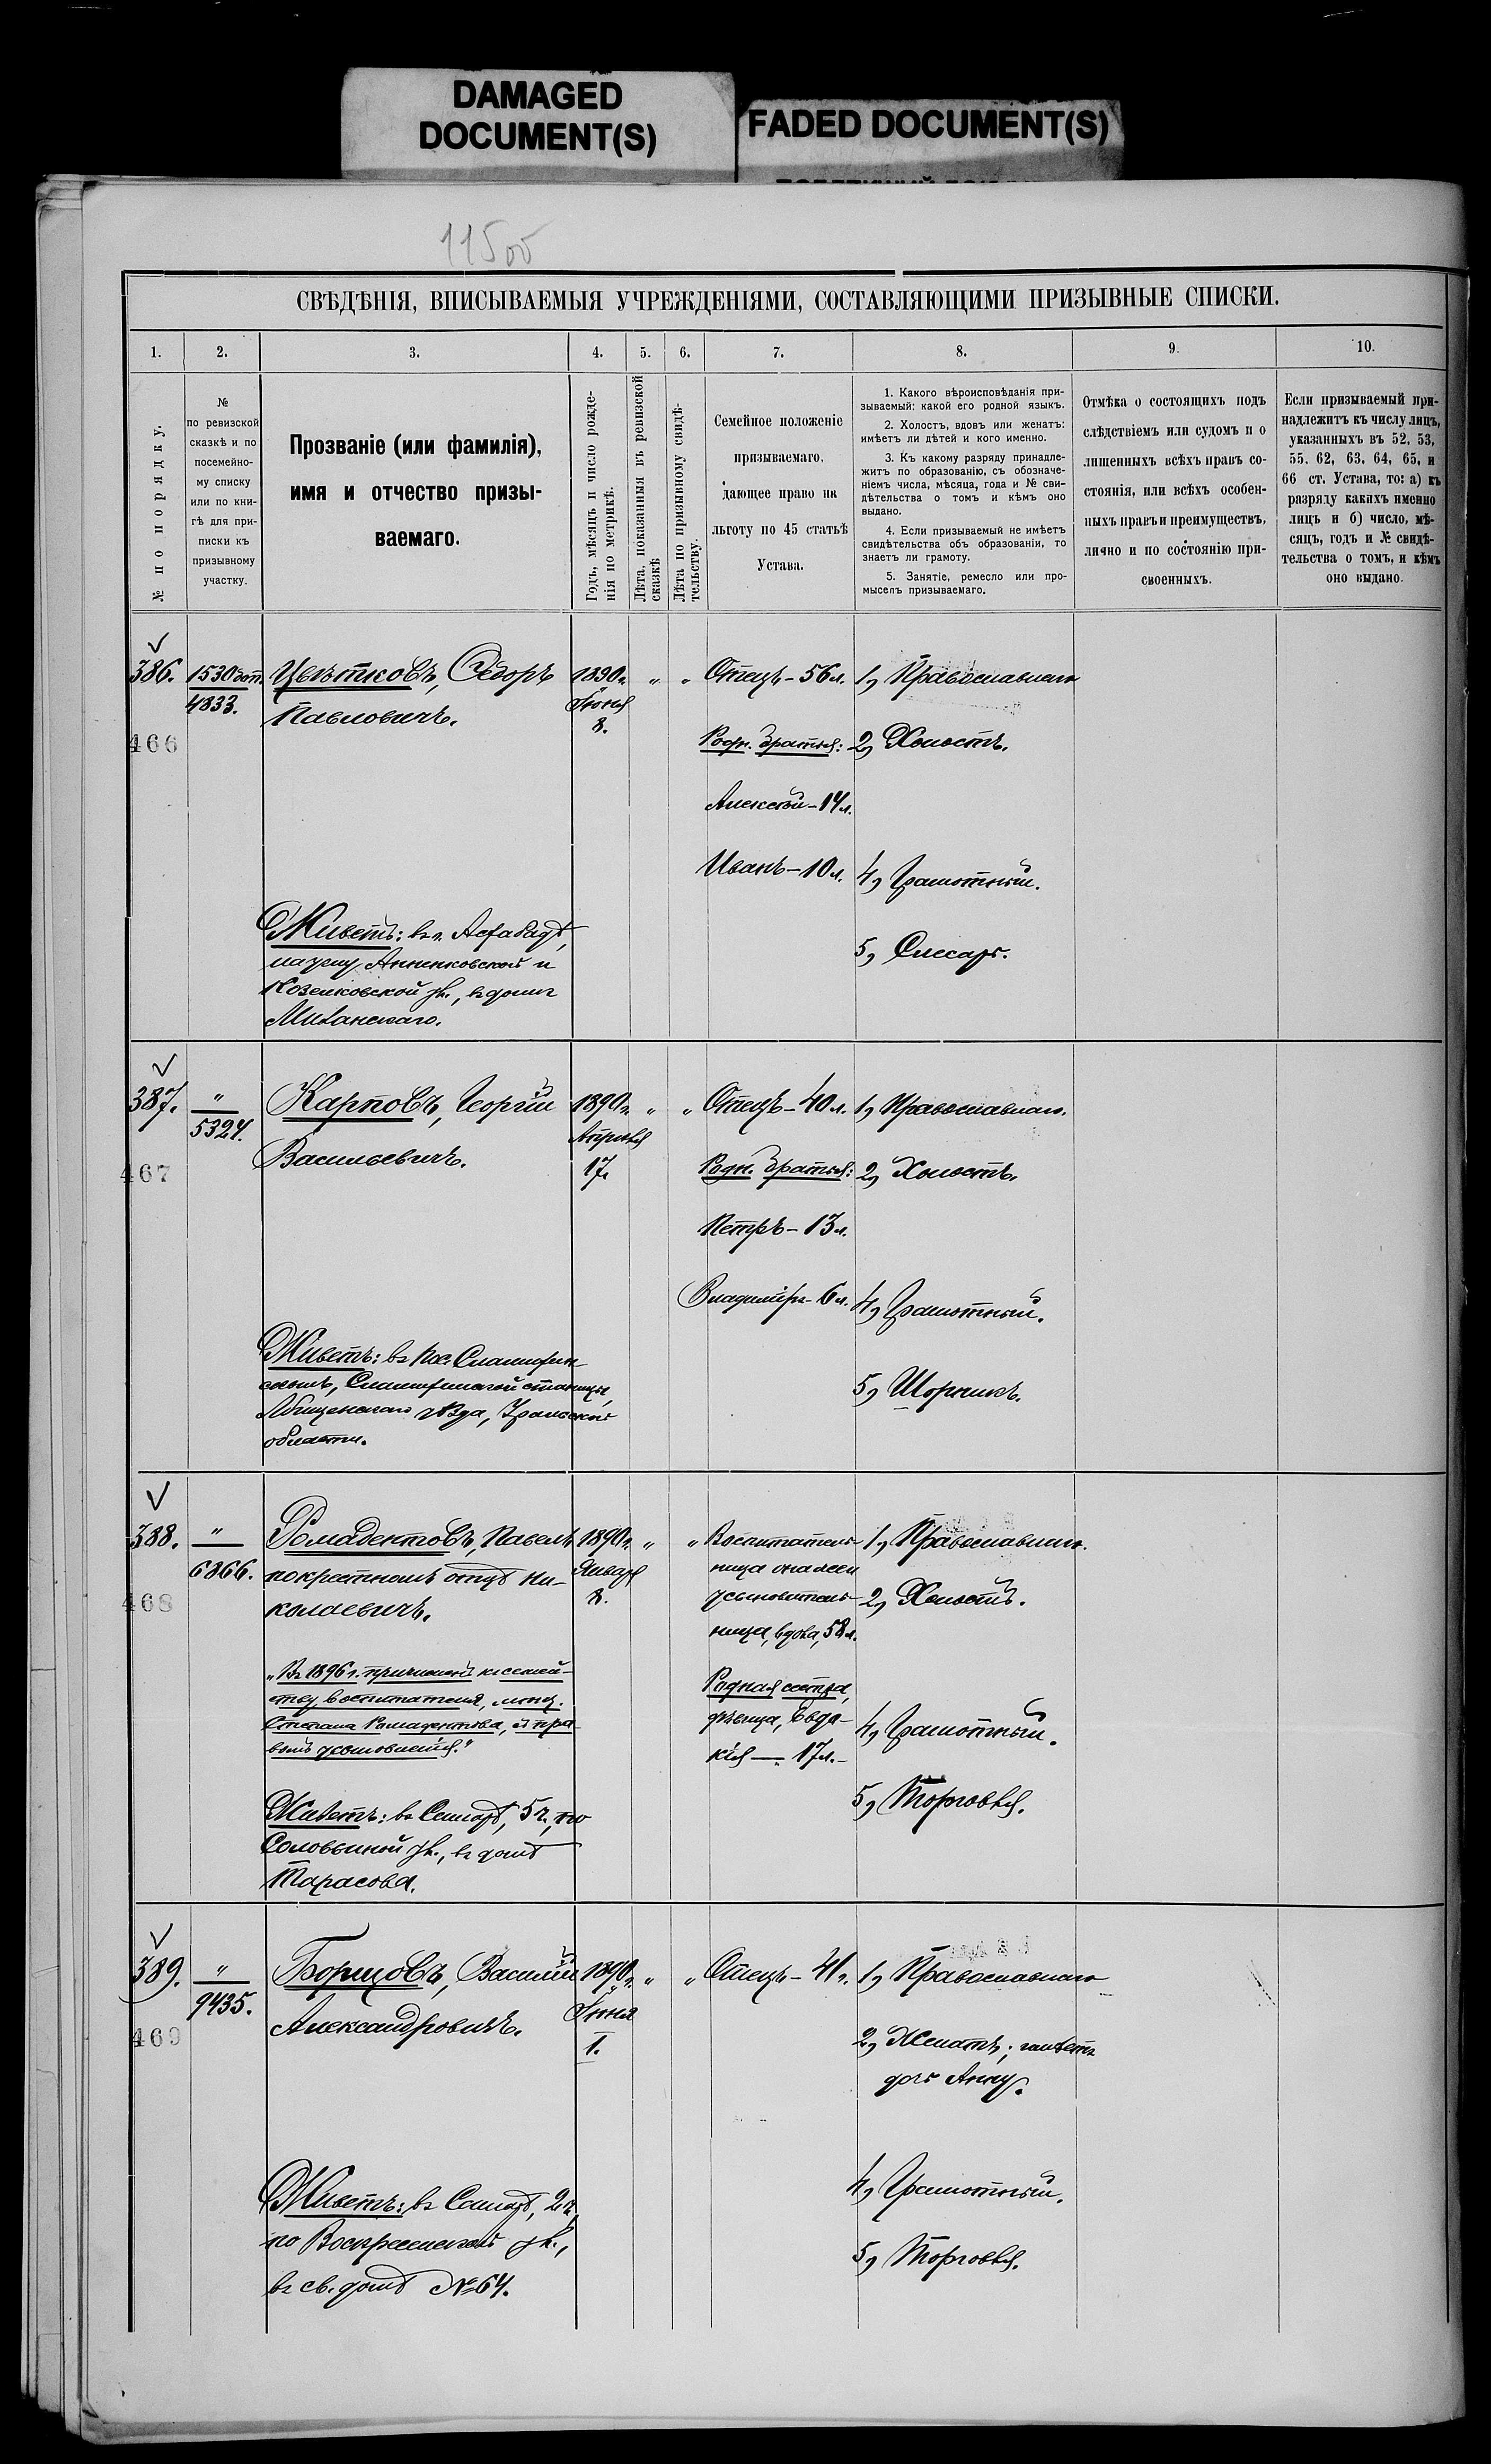 DAMAGED
DOCUMENT(S)
FADED DOCUMENT(S)
11500
СВѢДѢНІЯ, ВПИСЫВАЕМЫЯ УЧРЕЖДЕНІЯМИ, СОСТАВЛЯЮЩИМИ ПРИЗЫВНЫЕ СПИСКИ.
1. 2. 3. 4. 5. 6. 7. 8. 9. 10.
№ по порядку.
№
по ревизской
сказкѣ и по
посемейно-
му списку
или по кни-
гѣ для при-
писки къ
призывному
участку.
Прозваніе (или фамилія),
имя и отчество призы-
ваемаго.
Годъ, мѣсяцъ и число рожде-
нія по метрикѣ.
Лѣта, показанныя въ ревизской
сказкѣ
Лѣта по призывному свидѣ-
тельству.
Семейное положеніе
призываемаго,
дающее право на
льготу по 45 статьѣ
Устава.
1. Какого вѣроисповѣданія при-
зываемый: какой его родной языкъ.
2. Холостъ, вдовъ или женатъ:
имѣетъ ли дѣтей и кого именно.
3. Къ какому разряду принадле-
житъ по образованію, съ обозначе-
ніемъ числа, мѣсяца, года и № сви-
дѣтельства о томъ и кѣмъ оно
выдано.
4. Если призываемый не имѣетъ
свидѣтельства объ образованіи, то
знаетъ ли грамоту.
5. Занятіе, ремесло или про-
мыселъ призываемаго.
Отмѣка о состоящихъ подъ
слѣдствіемъ или судомъ и о
лишенныхъ всѣхъ правъ со-
стоянія, или всѣхъ особен-
ныхъ правъ и преимуществъ,
лично и по состоянію при-
своенныхъ.
Если призываемый при-
надлежитъ къ числу лицъ,
указанныхъ въ 52, 53,
55, 62, 63, 64, 65, и
66 ст. Устава, то: а) къ
разряду какихъ именно
лицъ и б) число, мѣ-
сяцъ, годъ и № свидѣ-
тельства о томъ, и кѣмъ
оно выдано.
386.
466
1530
4833.
Цвѣтковъ, Ѳедоръ
Павловичъ.
Живетъ: въ г. Асхабадѣ,
на углу Анненковской и
Козелковской ул., въ домѣ
1890г.
Іюня
8.
" "
Отецъ - 56 л.
Родн. братья:
Алексѣй - 14 л.
Иванъ - 10 л.
1) Православнаго
2) Холостъ.
4) Грамотный.
5) Слесарь.
387.
467
"
5324.
Карповъ, Георгій
Васильевичъ.
Живетъ: въ пос.
Лбищенскаго уѣзда, Уральской
области.
1890г.
Апрѣля
17.
" "
Отецъ - 40 л.
Родн. братья:
Петръ - 13 л.
Владиміръ - 6 л.
1) Православнаго.
2) Холостъ.
4) Грамотный.
5) Шорникъ.
388.
468
"
6366.
Ромадентовъ, Павелъ
по крестному отцу Ни-
колаевичъ.
„Въ 1896 г. причисленъ къ семей-
ству воспитателя, мѣщ.
Степана Ромадентова, съ пра-
вомъ усыновленія."
Живетъ: въ Самарѣ, 5 ч., по
Соловьиной ул., въ домѣ
Тарасова.
1890г.
Января
8.
" "
Воспитатель-
ница она же и
усыновитель-
ница, вдова, 58 л.
Родная сестра,
дѣвица, Евдо-
кія — 17 л. -
1) Православнаго.
2) Холостъ.
4) Грамотный.
5) Торговля.
389.
469
"
9435.
Борщовъ, Василій
Александровичъ.
Живетъ: въ Самарѣ, 2 ч.,
по Воскресенской ул.,
въ св. домѣ № 64.
1890г.
Іюня
1.
" "
Отецъ - 41 г.
1) Православнаго
2) Женатъ; имѣетъ
дочь Анну.
4) Грамотный.
5) Торговля.